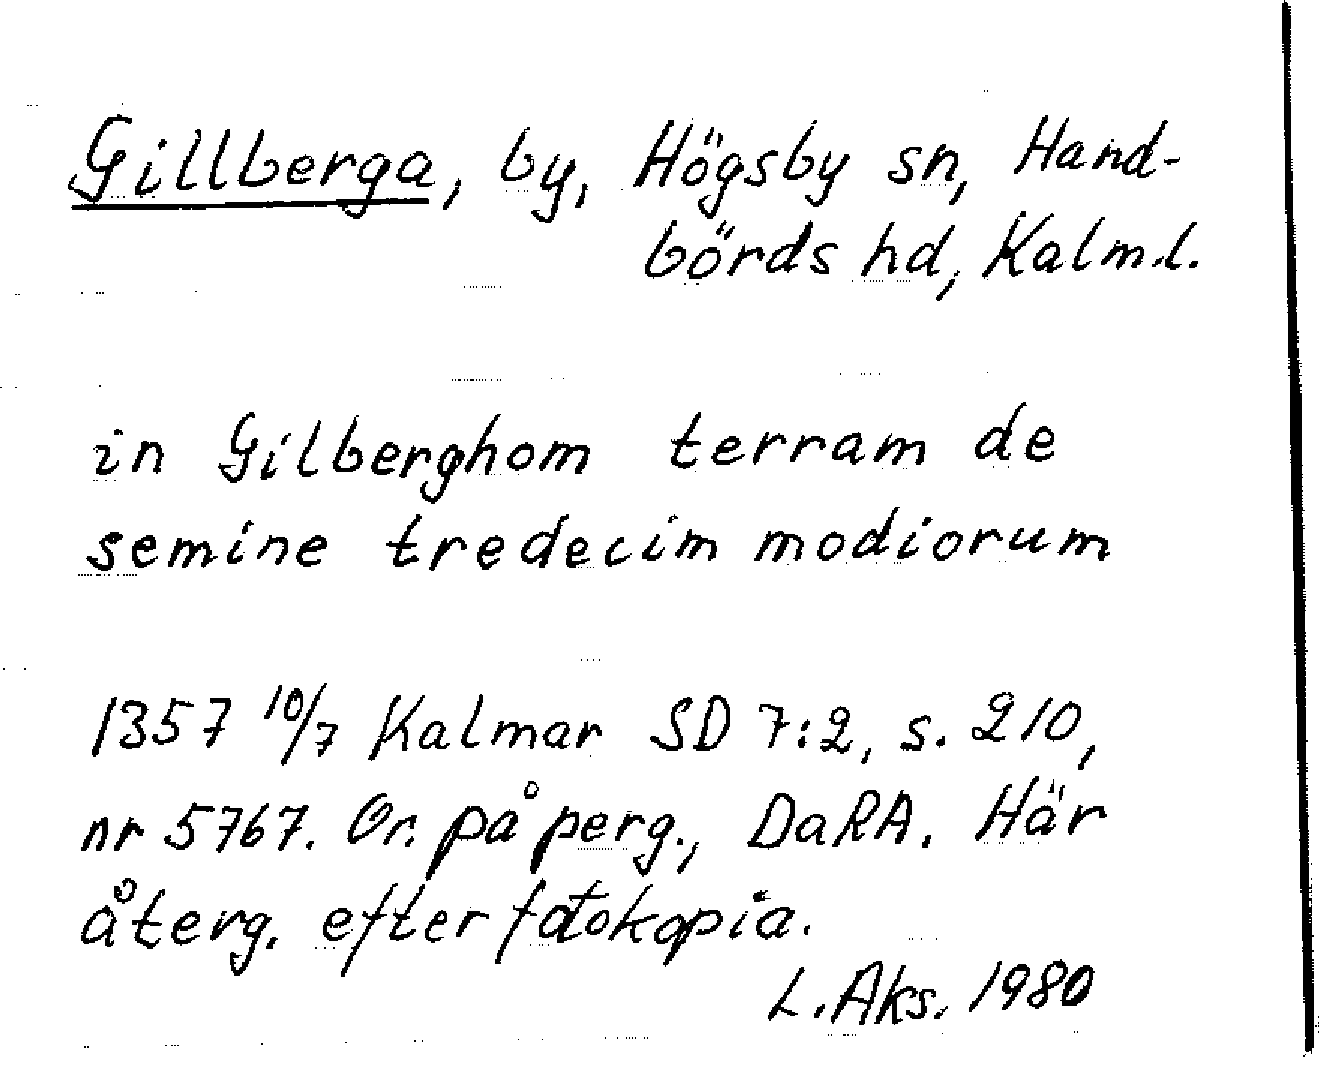 Gillberga, by, Högsby sn, Hand-
börds hd, Kalm.l.
in Gilberghom terram de
semine tredecim modiorum
1357 10/7 Kalmar SD 7:2, s. 210,
nr 5767. Or. på perg., DaRA. Här
återg. efter fotokopia.
L. Aks. 1980